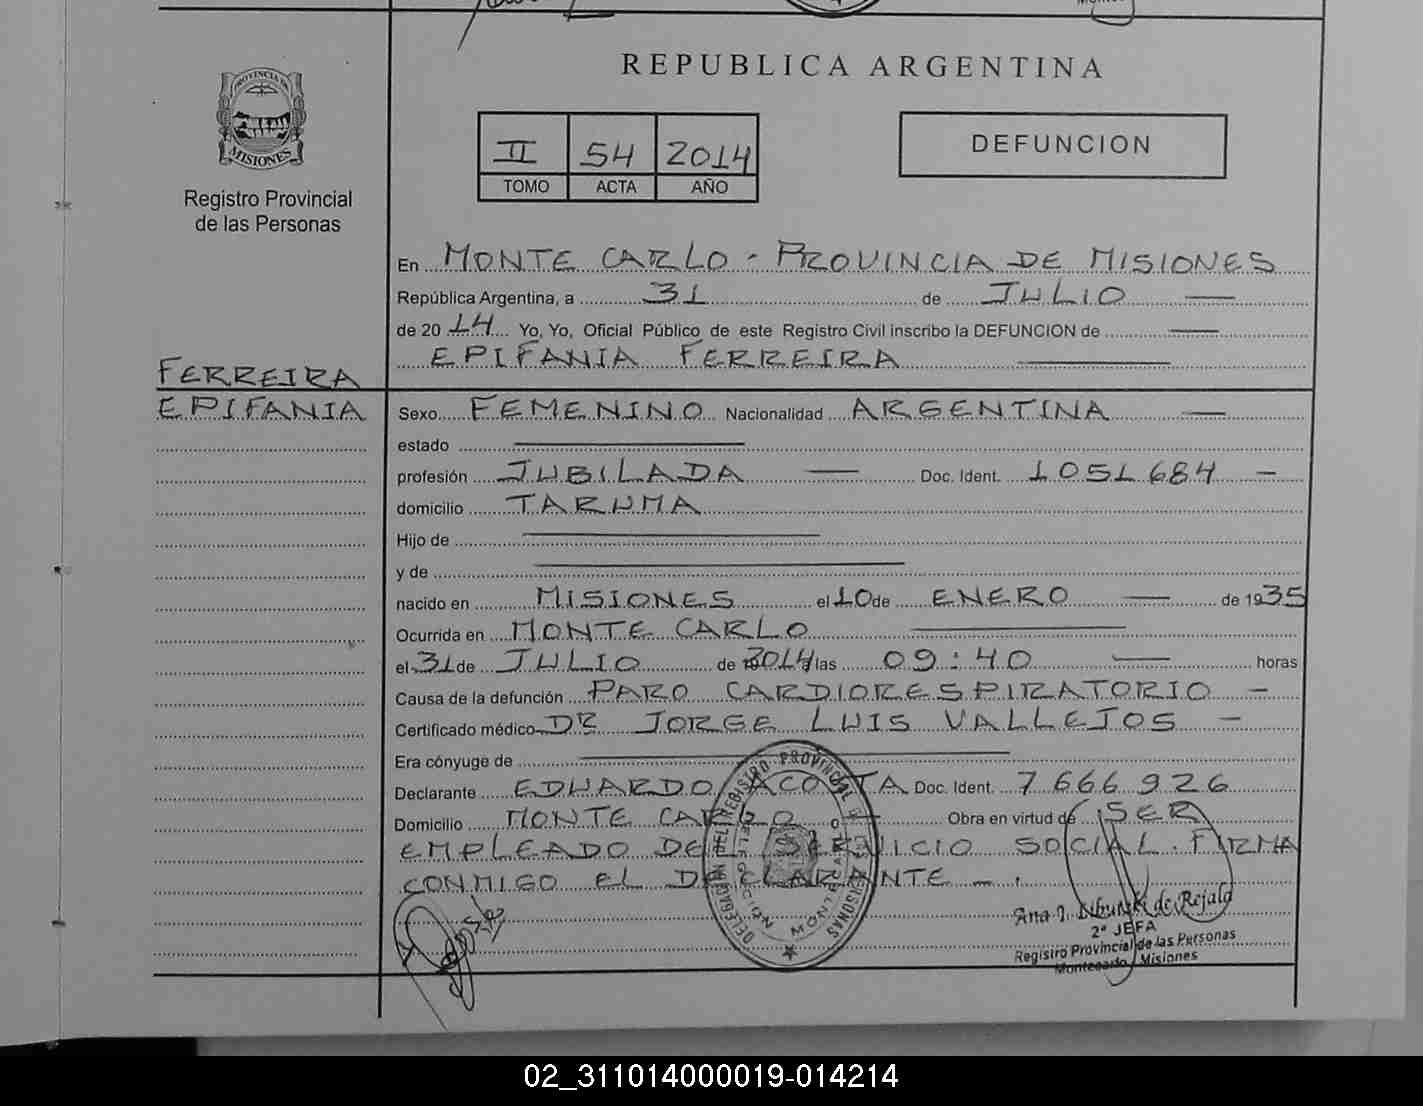 PROVINCIA DE
MISIONES
Registro Provincial
de las Personas
FERREIRA
EPIFANIA
REPUBLICA ARGENTINA
II 54 2014
TOMO ACTA AÑO
DEFUNCION
En MONTE CARLO - PROVINCIA DE MISIONES
República Argentina, a 31 de JULIO
de 2014 Yo, Yo, Oficial Público de este Registro Civil inscribo la DEFUNCION de
EPIFANIA FERREIRA
Sexo FEMENINO Nacionalidad ARGENTINA
estado
profesión JUBILADA Doc. Ident. 1051684 -
domicilio TARUMA
Hijo de
y de
nacido en MISIONES el 10 de ENERO de 1935
Ocurrida en MONTE CARLO
el 31 de JULIO de 2014 las 09:40 horas
Causa de la defunción PARO CARDIORESPIRATORIO -
Certificado médico DR JORGE LUIS VALLEJOS -
Era cónyuge de
Declarante EDUARDO ACOSTA Doc. Ident. 7666926
Domicilio MONTE CARLO Obra en virtud de SER
EMPLEADO DEL SERVICIO SOCIAL. FIRMA
CONMIGO EL DECLARANTE - .
DELEGACION DEL REGISTRO PROVINCIAL DE LAS PERSONAS
2ª JEFA
Registro Provincial de las Personas
Montecarlo Misiones
02_311014000019-014214